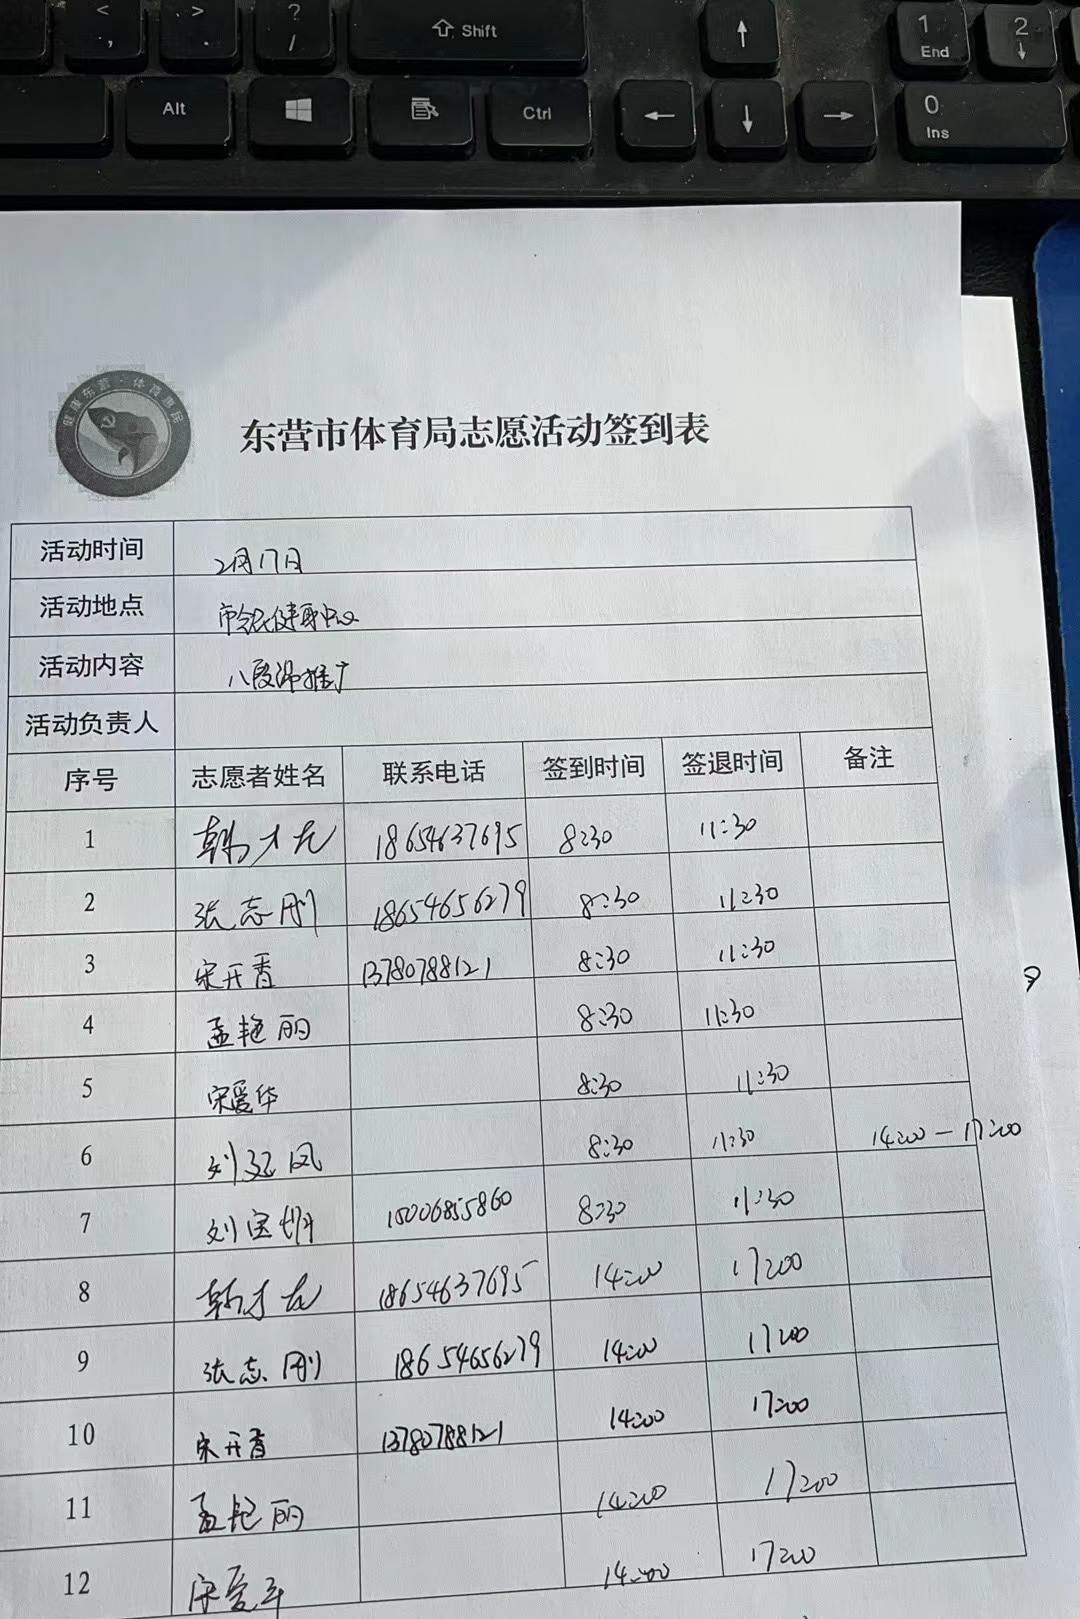 < ,
> .
? /
Shift
1 End
2
Alt
Ctrl
0 Ins
健康东营·体育惠民
东营市体育局志愿活动签到表
活动时间 2月17日
活动地点 市全民健身中心
活动内容 八段锦推广
活动负责人
序号 志愿者姓名 联系电话 签到时间 签退时间 备注
1 韩才友 18654637695 8:30 11:30
2 张志刚 18654656279 8:30 11:30
3 宋开香 13780788121 8:30 11:30
4 孟艳丽 8:30 11:30
5 宋爱华 8:30 11:30
6 刘 风 8:30 11:30 14:00-17:00
7 刘宝娟 15006855860 8:30 11:30
8 韩才友 18654637695 14:00 17:00
9 张志刚 18654656279 14:00 17:00
10 宋开香 13780788121 14:00 17:00
11 孟艳丽 14:00 17:00
12 宋爱华 14:00 17:00